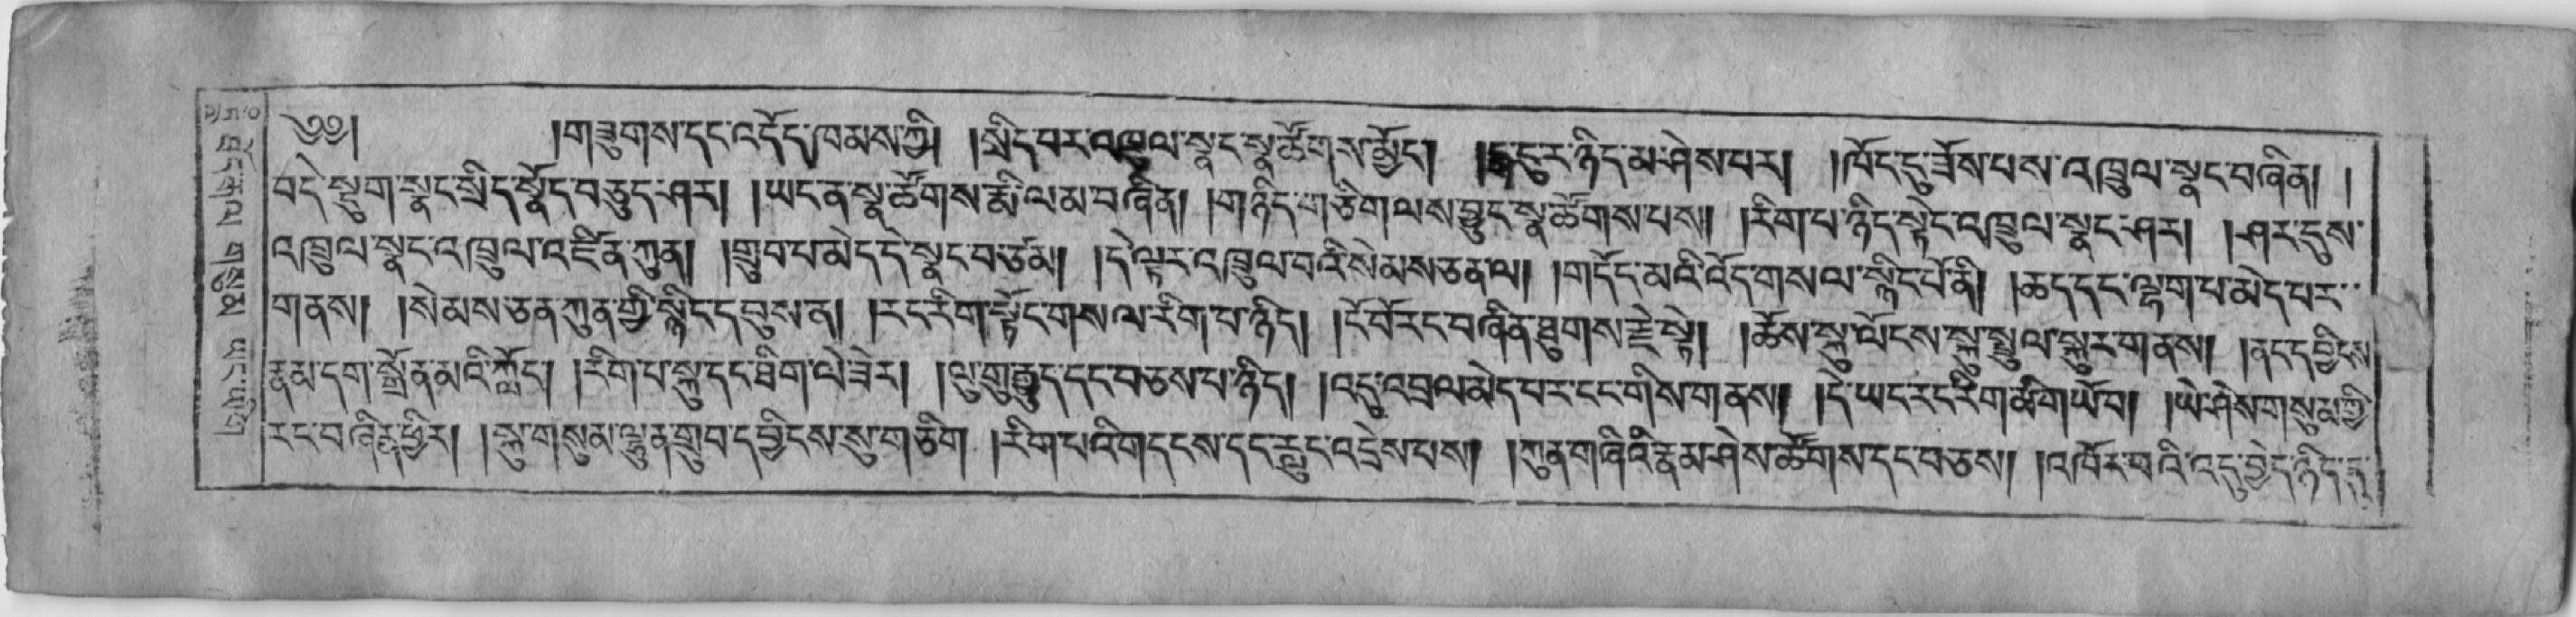 ༄༅། །གཟུགས་དང་འདོད་ཁམས་ཀྱི། །སྲིད་པར་འཁྲུལ་སྣང་སྣ་ཚོགས་མྱོང། །ད་དུར་ཉིད་མ་ཤེས་པར། །ཁོང་དུ་ཟོས་པས་འཁྲུལ་སྣང་བཞིན། །
བདེ་སྡུག་སྣང་སྲིད་སྣོད་བཅུད་ཤར། །ཡང་ན་སྣ་ཚོགས་རྨི་ལམ་བཞིན། །གཉིད་གཅིག་ལས་བྱུང་སྣ་ཚོགས་པས། །རིག་པ་ཉིད་སྟེང་འཁྲུལ་སྣང་ཤར། །ཤར་དུས་
འཁྲུལ་སྣང་འཁྲུལ་འཛིན་ཀུན། །གྲུབ་པ་མེད་དེ་སྣང་བ་ཙམ། །དེ་ལྟར་འཁྲུལ་བའི་སེམས་ཅན་ལ། །གདོད་མའི་འོད་གསལ་སྙིང་པོ་ནི། །ཆད་དང་ལྷག་པ་མེད་པར་
གནས། །སེམས་ཅན་ཀུན་གྱི་སྙིང་དབུས་ན། །རང་རིག་སྟོང་གསལ་རིག་པ་ཉིད། །ངོ་བོ་རང་བཞིན་ཐུགས་རྗེ་སྟེ། །ཆོས་སྐུ་ལོངས་སྐུ་སྤྲུལ་སྐུར་གནས། །ནང་དབྱིངས
རྣམ་དག་སྒྲོན་མའི་ཀློང། །རིག་པ་སྐུ་དང་ཐིག་ལེ་ཟེར། །ལུ་གུ་རྒྱུད་དང་བཅས་པ་ཉིད། །འདུ་འབྲལ་མེད་པར་ངང་གིས་གནས། །དེ་ཡང་རང་རིག་མིག་ཡོབ། །ཡེ་ཤེས་གསུམ་ཀྱི
རང་བཞིན་ཕྱིར། །སྐུ་གསུམ་ལྷུན་གྲུབ་དབྱིངས་སུ་གཅིག །རིག་པའི་གདངས་དང་རླུང་འདྲེས་པས། །ཀུན་གཞིའི་རྣམ་ཤེས་ཚོགས་དང་བཅས། །འཁོར་བའི་འདུ་བྱེད་ཉིད་དུ་